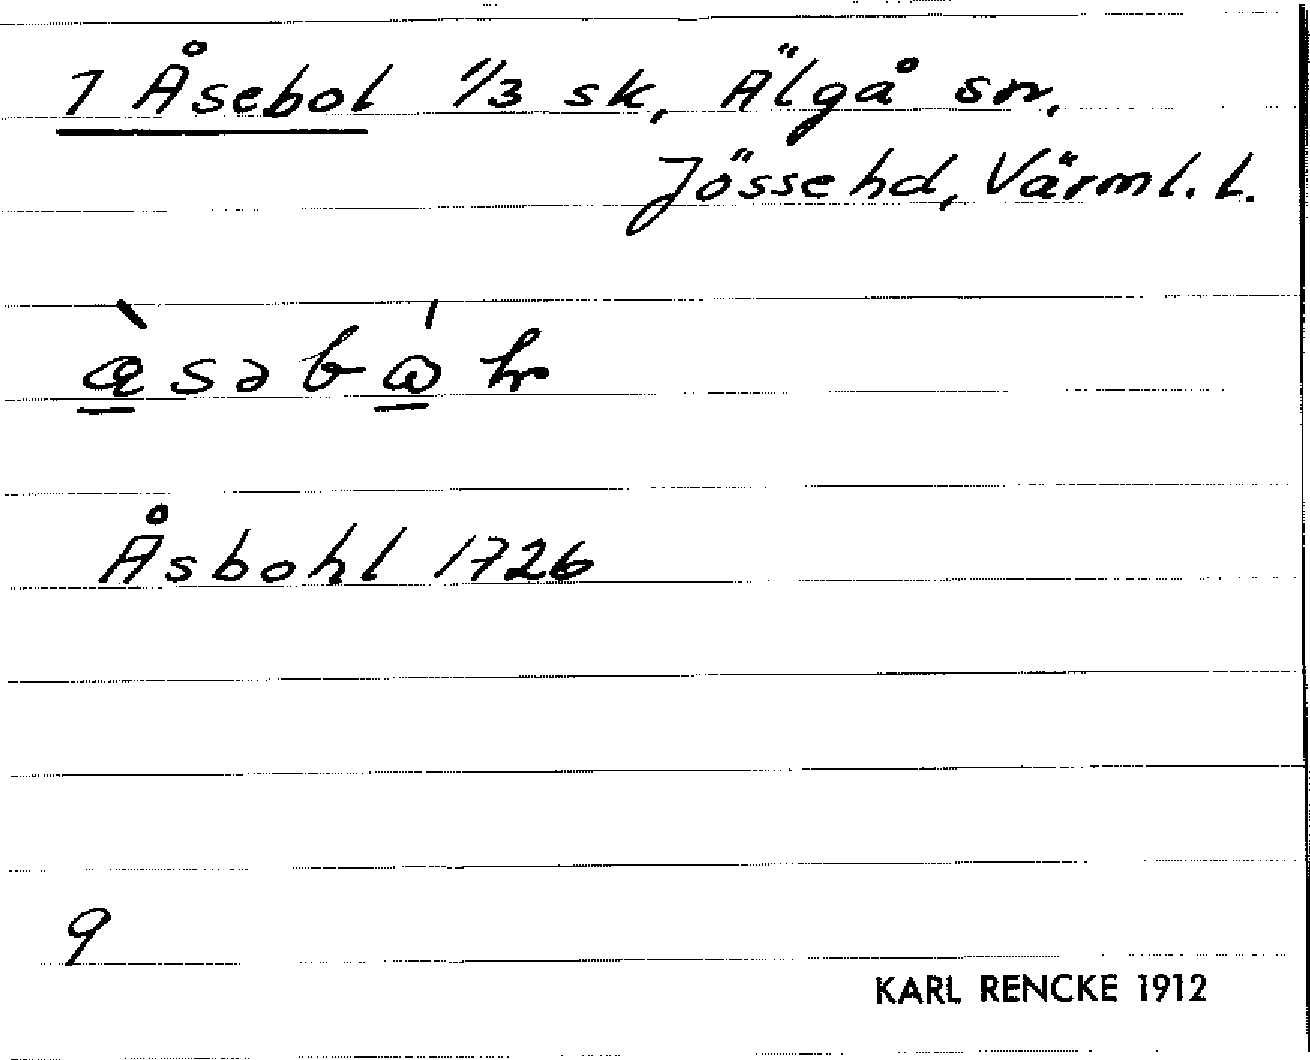 1 Åsebol 1/3 sk, Älgå sn,
Jösse hd, Värml. L.
Åsbohl 1726
9
KARL RENCKE 1912